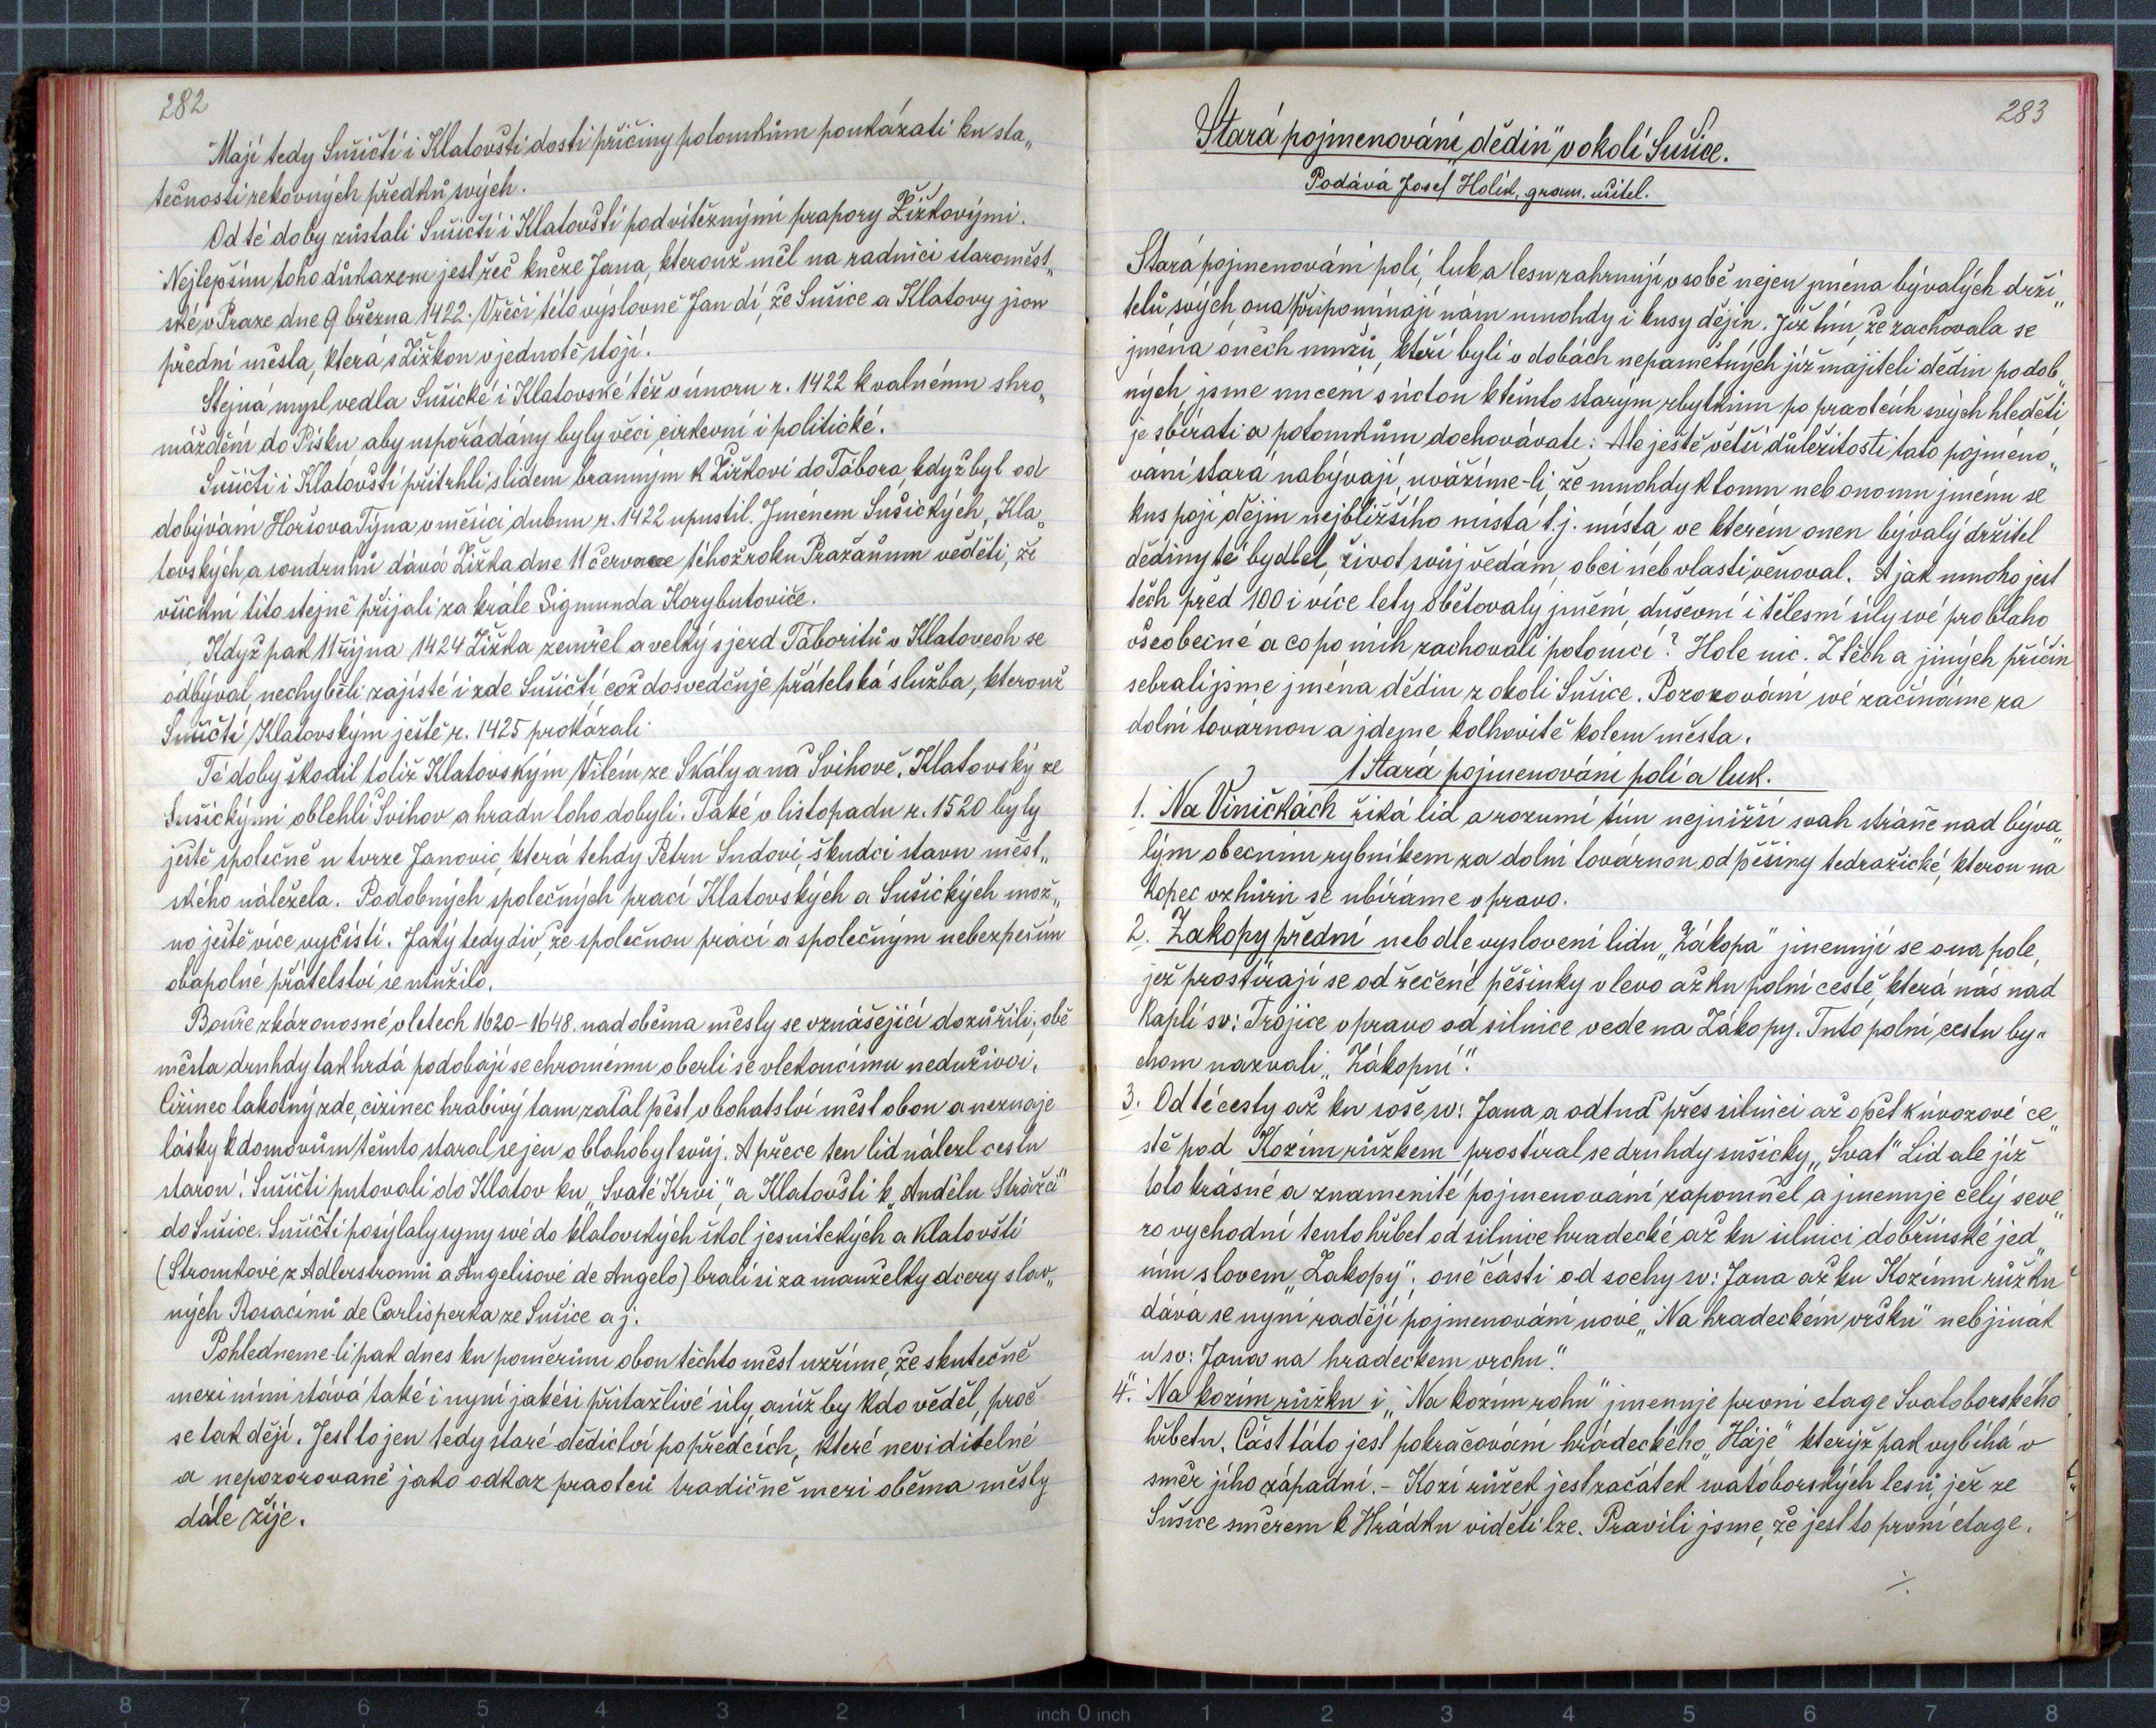 282
Mají tedy Sušičtí i Klatovští dosti příčiny potomkům poukázati ku sta„
tečnosti rekovných předků svých.
Od té doby zůstali Sušičtí i Klatovští pod vítěznými prapory Žižkovými.
Nejlepším toho důkazem jest řeč kněze Jana, kterouž měl na radnici staroměst„
ské v Praze dne 9 března 1422. V řeči této výslovně Jan dí, že Sušice a Klatovy jsou
přední města, která s Žižkou v jednotě stojí.
Stejná mysl vedla Sušické i Klatovské též v únoru r. 1422 k valnému shro„
máždění do Písku, aby uspořádány byly věci církevní i politické.
Sušičti i Klatovští přitrhli s lidem branným k Žižkovi do Tábora, když byl od
dobývání Horšova Týna v měsíci dubnu r. 1422 upustil. Jménem Sušických, Kla„
tovských a soudruhů dává Žižka dne 11 července téhož roku Pražanům věděti, že
všickni tito stejně přijali za krále Sigmunda Korybutoviče.
Když pak 11 října 1424 Žižka zemřel a velký sjezd Táboritů v Klatovech se
odbýval, nechyběli zajisté i zde Sušičtí, což dosvedčuje přátelská služba, kterouž
Sušičtí Klatovským ještě r. 1425 prokázali.
Té doby škodil totiž Klatovským Vilém ze Skály a na Švihově. Klatovský ze
Sušickými oblehli Švihov a hradu toho dobyli. Také v listopadu r. 1520 byly
ještě společně u tvrze Janovic, která tehdy Petru Sudovi, škudci stavu měst„
ského náležela. Podobných společných prací Klatovských a Sušických mož„
no ještě více vyčísti. Jaký tedy div, že společnou prací a společným nebezpečím
obapolné přátelství se utužilo.
Bouře zkázonosné v letech 1620–1648. nad oběma městy se vznášející dozuřili; obě
města druhdy tak hrdá podobají se chromému o berli se vlekoucímu neduživci.
Cizinec lakotný zde, cizinec hrabivý tam zaťal pěst v bohatství měst obou a neznaje
lásky k domovům těmto staral se jen o blahobyt svůj. A přece ten lid nálezl cestu
starou! Sušičti putovali do Klatov ku „Svaté Krvi," a Klatovšti k „Andělu Strážci"
do Sušice. Sušičti posýlaly syny své do klatovských škol jesuitckých a Klatovští
(Stromkové z Adlerstromů a Angelisové de Angelo) brali si za manželky dcery slav„
ných Rosacínů de Carlisperka ze Sušice a j.
Pohledneme-li pak dnes ku poměrům obou těchto měst uzříme, že skutečně
mezi nimi stává také i nyní jakési přitažlivé síly, aniž by kdo věděl, proč
se tak dějí. Jest to jen tedy staré dědictví po předcích, které neviditelné
a nepozorované jako odkaz praotců tradičně mezi oběma městy
dále žije.
283
Stará pojmenování „dědin" v okolí Sušice.
Podává Josef Holík, gram. učitel.
Stará pojmenování polí, luk a lesu zahrnují v sobě nejen jména bývalých drži„
telů svých, ona připomínají nám mnohdy i kusy dějin. Již tím, že zachovala se
jména oněch mužů, kteří byli v dobách nepamětných již majiteli dědin podob„
ných, jsme nuceni s úctou k těmto starým zbytkům po praotcích svých hleděti,
je sbírati a potomkům dochovávate: Ale ještě větší důležitosti tato pojméno„
vání stará nabývají, uvážíme-li, že mnohdy k tomu neb onomu jménu se
kus pojí dějin nejbližšího místa t. j. místa ve kterém onen bývalý držitel
dědiny té bydlel, život svůj vědám, obci neb vlasti věnoval. A jak mnoho jest
těch před 100 i více lety obětovaly jmění, duševní i tělesní síly své pro blaho
všeobecné a co po nich zachovali potomci? Hole nic. Z těch a jiných příčin
sebrali jsme jména dědin z okolí Sušice. Pozorování své začínáme za
dolní továrnou a jdeme kolhovitě kolem města.
1 Stará pojmenování polí a luk.
1. Na Viničkách říká lid a rozumí tím nejnižší svah stráně nad býva„
lým obecním rybníkem za dolní továrnou, od pěšiny tedražické, kterou na
kopec vzhůru se ubíráme vpravo.
2. Zakopy přední neb dle vyslovení lidu „Zákopa" jmennjí se ona pole,
jež prostírají se od řečené pěšinky vlevo až ku polní cestě, která nás nad
Kaplí sv: Trojice vpravo od silnice vede na Zákopy. Tuto polní cestu by„
chom nazvali „Zákopní".
3. Od té cesty až ku soše sv: Jana a odtud přes silnici až opět k úvozové ce„
stě pod Kozím růžkem prostíral se druhdy sušicky „Svat" Lid ale již
toto krásné a znamenité pojmenování zapomněl a jmenuje celý seve„
ro vychodní tento hřbet od silnice hradecké až ku silnici dobřínské jed„
ním slovem „Zakopy"; oné části od sochy sv: Jana až ku Kozímu růžku
dává se nyní raději pojmenování nové „Na hradeckém vršku" neb jinák
u sv: Jana na hradeckem vrchu."
4. "Na kozím růžku i „Na kozím rohu" jmenuje první etage Svatoborského
hřbetu. Část táto jest pokračování hrádeckého „Háje" kterýž pak vybíhá v
směr jiho západní. – Kozí růžek jest začátek svatoborských lesů, jež ze
Sušice směrem k Hrádku viděti lze. Pravili jsme, že jest to první etage.
./.